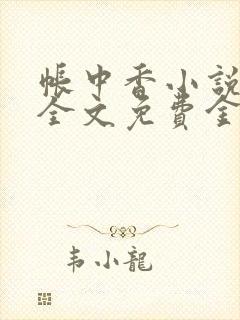 帳中香小說
全文免費全
韦小龍